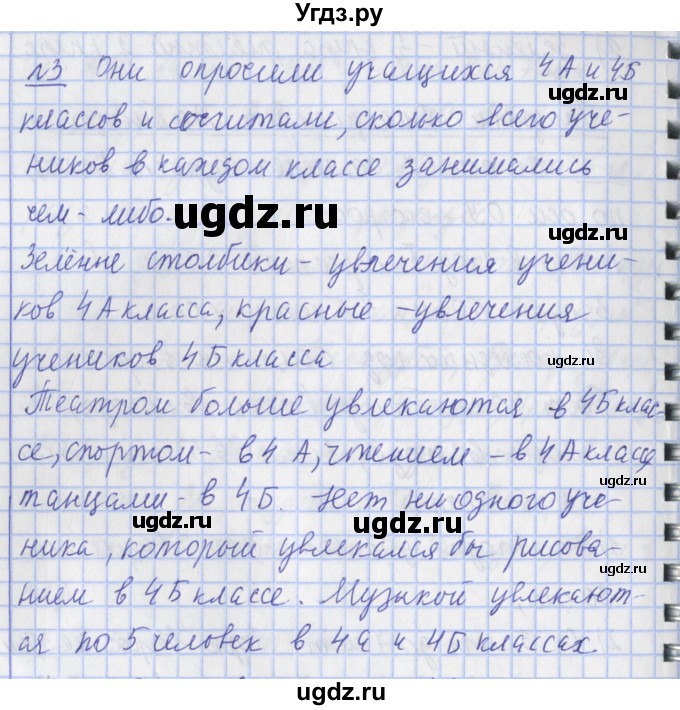 Угдз.ру
№3 Они опросили учащихся 4А и 4Б
классов и сосчитали, сколько всего уче-
ников в каждом классе занимались
чем-либо.
Зелённе столбики - увлечения учени-
ков 4А класса, красные - увлечения
учеников 4Б класса
Театром больше увлекаются в 4Б клас-
се, спортом - в 4 А, чтением - в 4А классе
танцами - в 4Б. Нет ни одного уче-
ника, который увлекался бы рисова-
нием в 4Б классе. Музыкой увлекают-
ся по 5 человек в 4а и 4Б классах.
ugdz.ru
ugdz.ru
ugdz.ru
ugdz.ru
ugdz.ru
ugdz.ru
ugdz.ru
ugdz.ru
ugdz.ru
ugdz.ru
ugdz.ru